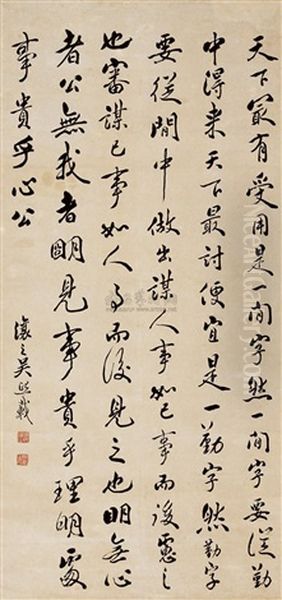 天下冣有受用是一閒字然一閒字要從勤
中得來天下最討便宜是一勤字然勤字
要從閒中做出謀人事如己事而後慮之
也審謀己事如人事而後見之也明無心
者公無我者明見事貴乎理明處
事貴乎心公
讓之吳熙載